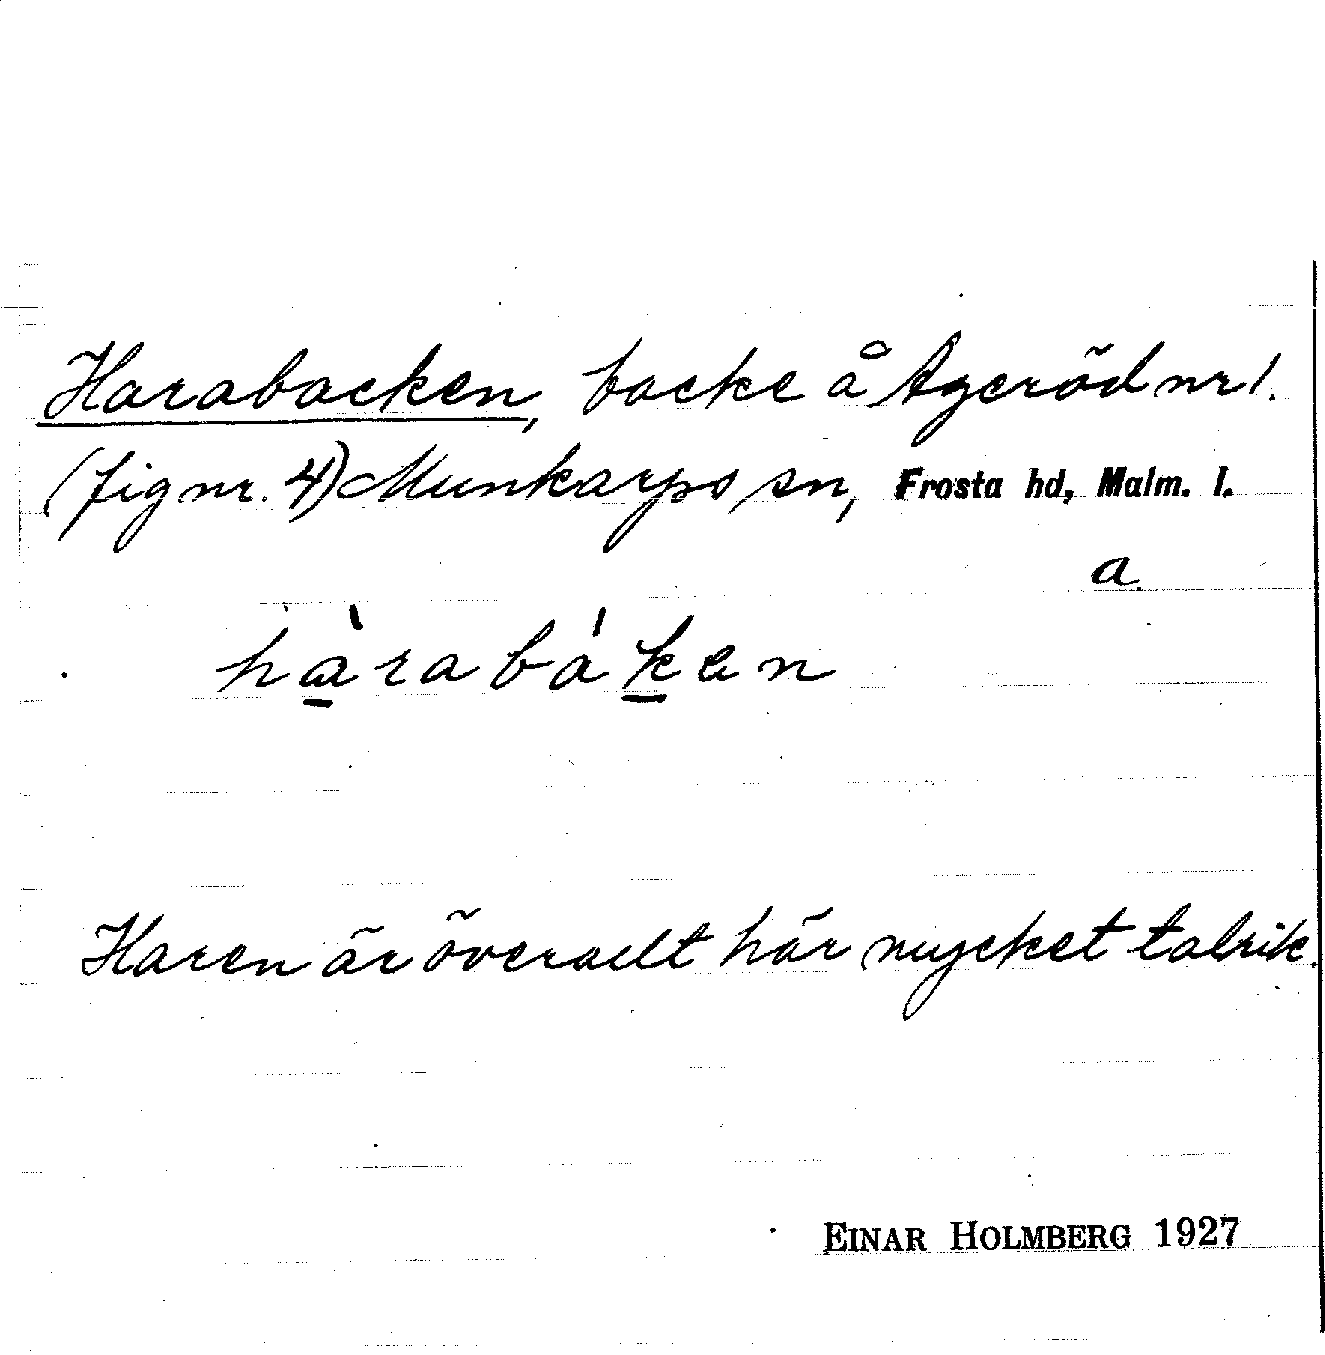 Harabacken, backe å Ageröd nr 1.
(fig nr. 4) Munkarps sn, Frosta hd, Malm. l.
a.
hàrabáken
Haren är överallt här mycket talrik.
EINAR HOLMBERG 1927